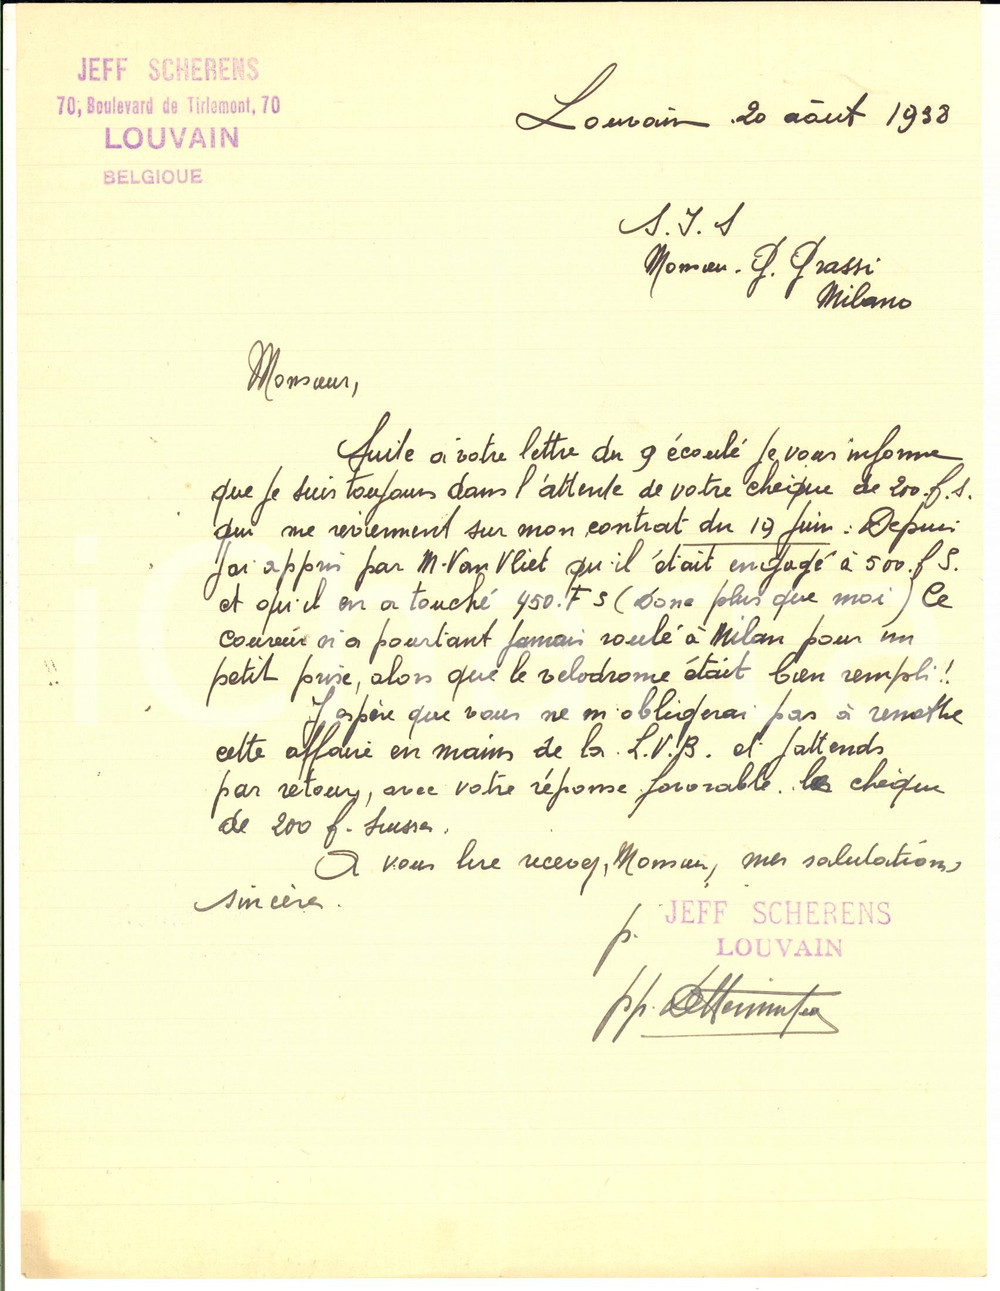 JEFF SCHERENS
70, Boulevard de Tirlemont, 70
LOUVAIN
BELGIQUE
Louvain 20 août 1938
S.I.S
Monsieur. G. Grassi
Milano
Monsieur,
Suite à votre lettre du 9 écoulé je vous informe
que je suis toujours dans l'attente de votre chèque de 200.f.S.
qui me reviennent sur mon contrat du 19 juin. Depuis
j'ai appris par M. Van Vliet qu'il était engagé à 500.f S.
et qu'il en a touché 450.F S (donc plus que moi) Ce
coureur n'a pourtant jamais roulé à Milan pour un
petit prix, alors que le velodrome était bien rempli!!
J'espère que vous ne m'obligerai pas à remettre
cette affaire en mains de la L.V.B. et j'attends
par retour, avec votre réponse favorable. le chèque
de 200 f. Suisses.
A vous lire recevez, Monsieur, mes salutations
sincères.
p. JEFF SCHERENS
LOUVAIN
pp.